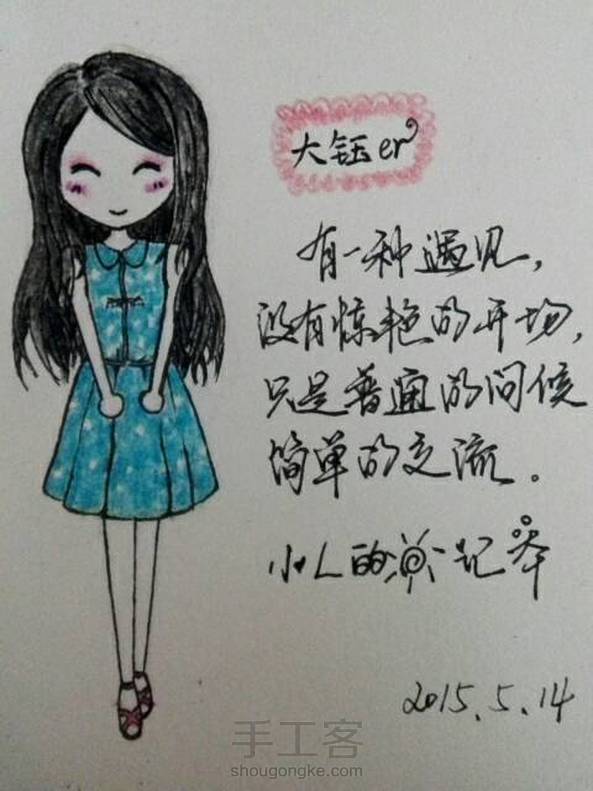 大钰er
有一种遇见,
没有惊艳的开场,
只是普通的问候
简单的交流。
小L的
记本
2015.5.14
手工客
shougongke.com